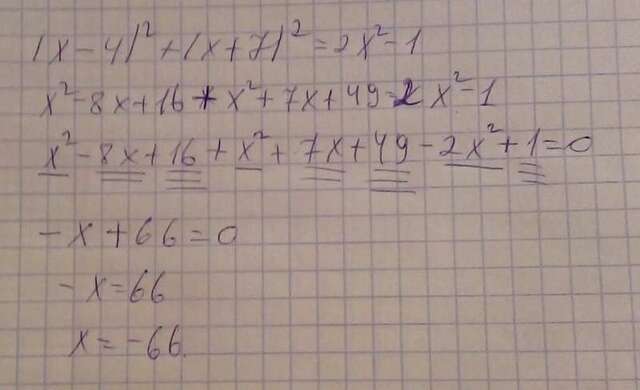 (x-4)²+(x+7)²=2x²-1
x²-8x+16+x²+7x+49=2x²-1
x²-8x+16+x²+7x+49-2x²+1=0
-x+66=0
-x=66
x=-66.